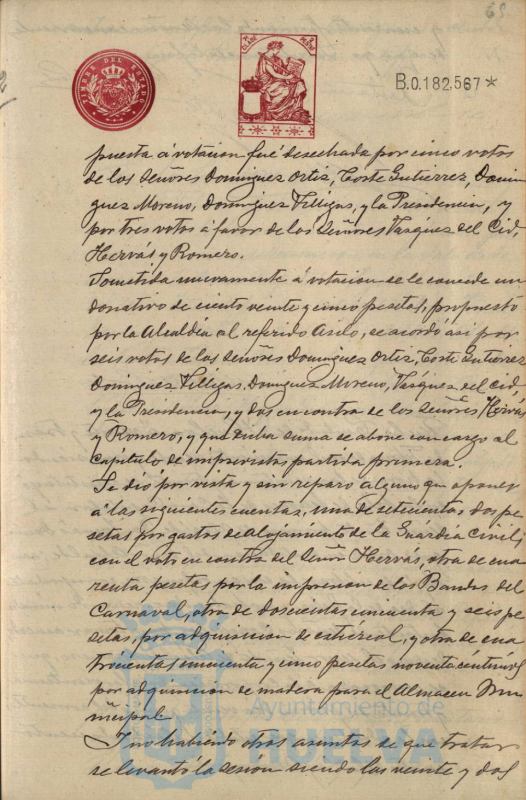 68
TIMBRE DEL ESTADO
B.0.182,567*
puesta á votacion fué desechada por cinco votos
de los Señores Dominguez Ortiz, Corte Gutierrez, Domin
guez Moreno, Dominguez Villegas, y la Presidencia, y
por tres votos á favor de los Señores Vazquez del Cid,
Hervás y Romero.
Sometida nuevamente á votacion se le concede un
donativo de ciento veinte y cinco pesetas, propuesto
por la Alcaldía al referido Asilo, se acordó así por
seis votos de los Señores Dominguez Ortiz, Corte Gutierrez
Dominguez Villegas, Dominguez Moreno, Vázquez del Cid,
y la Presidencia, y dos en contra de los Señores Hervás
y Romero, y que dicha suma se abone con cargo al
Capítulo de imprevistos partida primera.
Se dió por vista y sin reparo alguno que oponer
á las siguientes cuentas, una de setecientas dos pe
setas por gastos de alojamiento de la Guardia Civil,
con el voto en contra del Señor Hervás, otra de cua
renta pesetas por la impresion de los Bandos del
Carnaval, otra de doscientas cincuenta y seis pe
setas, por adquisicion de estiércol, y otra de cua
trocientas cincuenta y cinco pesetas noventa céntimos
por adquisicion de madera para el Almacen Mu
nicipal
Y no habiendo otros asuntos de que tratar
se levantó la sesion siendo las veinte y dos
Ayuntamiento de
HUELVA